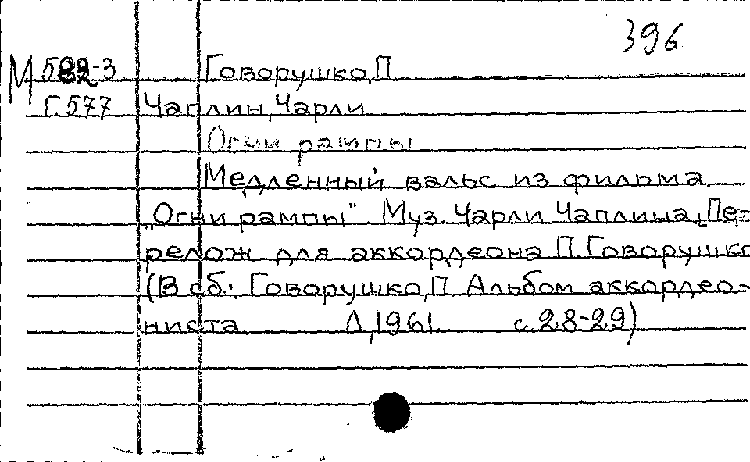 396
М 582-3 Говорушко, П
Г.577 Чаплин, Чарли
Огни рампы
Медленный вальс из фильма
„Огни рампы". Муз. Чарли Чаплина, Пе-
релож для аккордеона П. Говорушко
(В сб.: Говорушко, П Альбом аккордео-
ниста Л, 1961. с. 28-29)